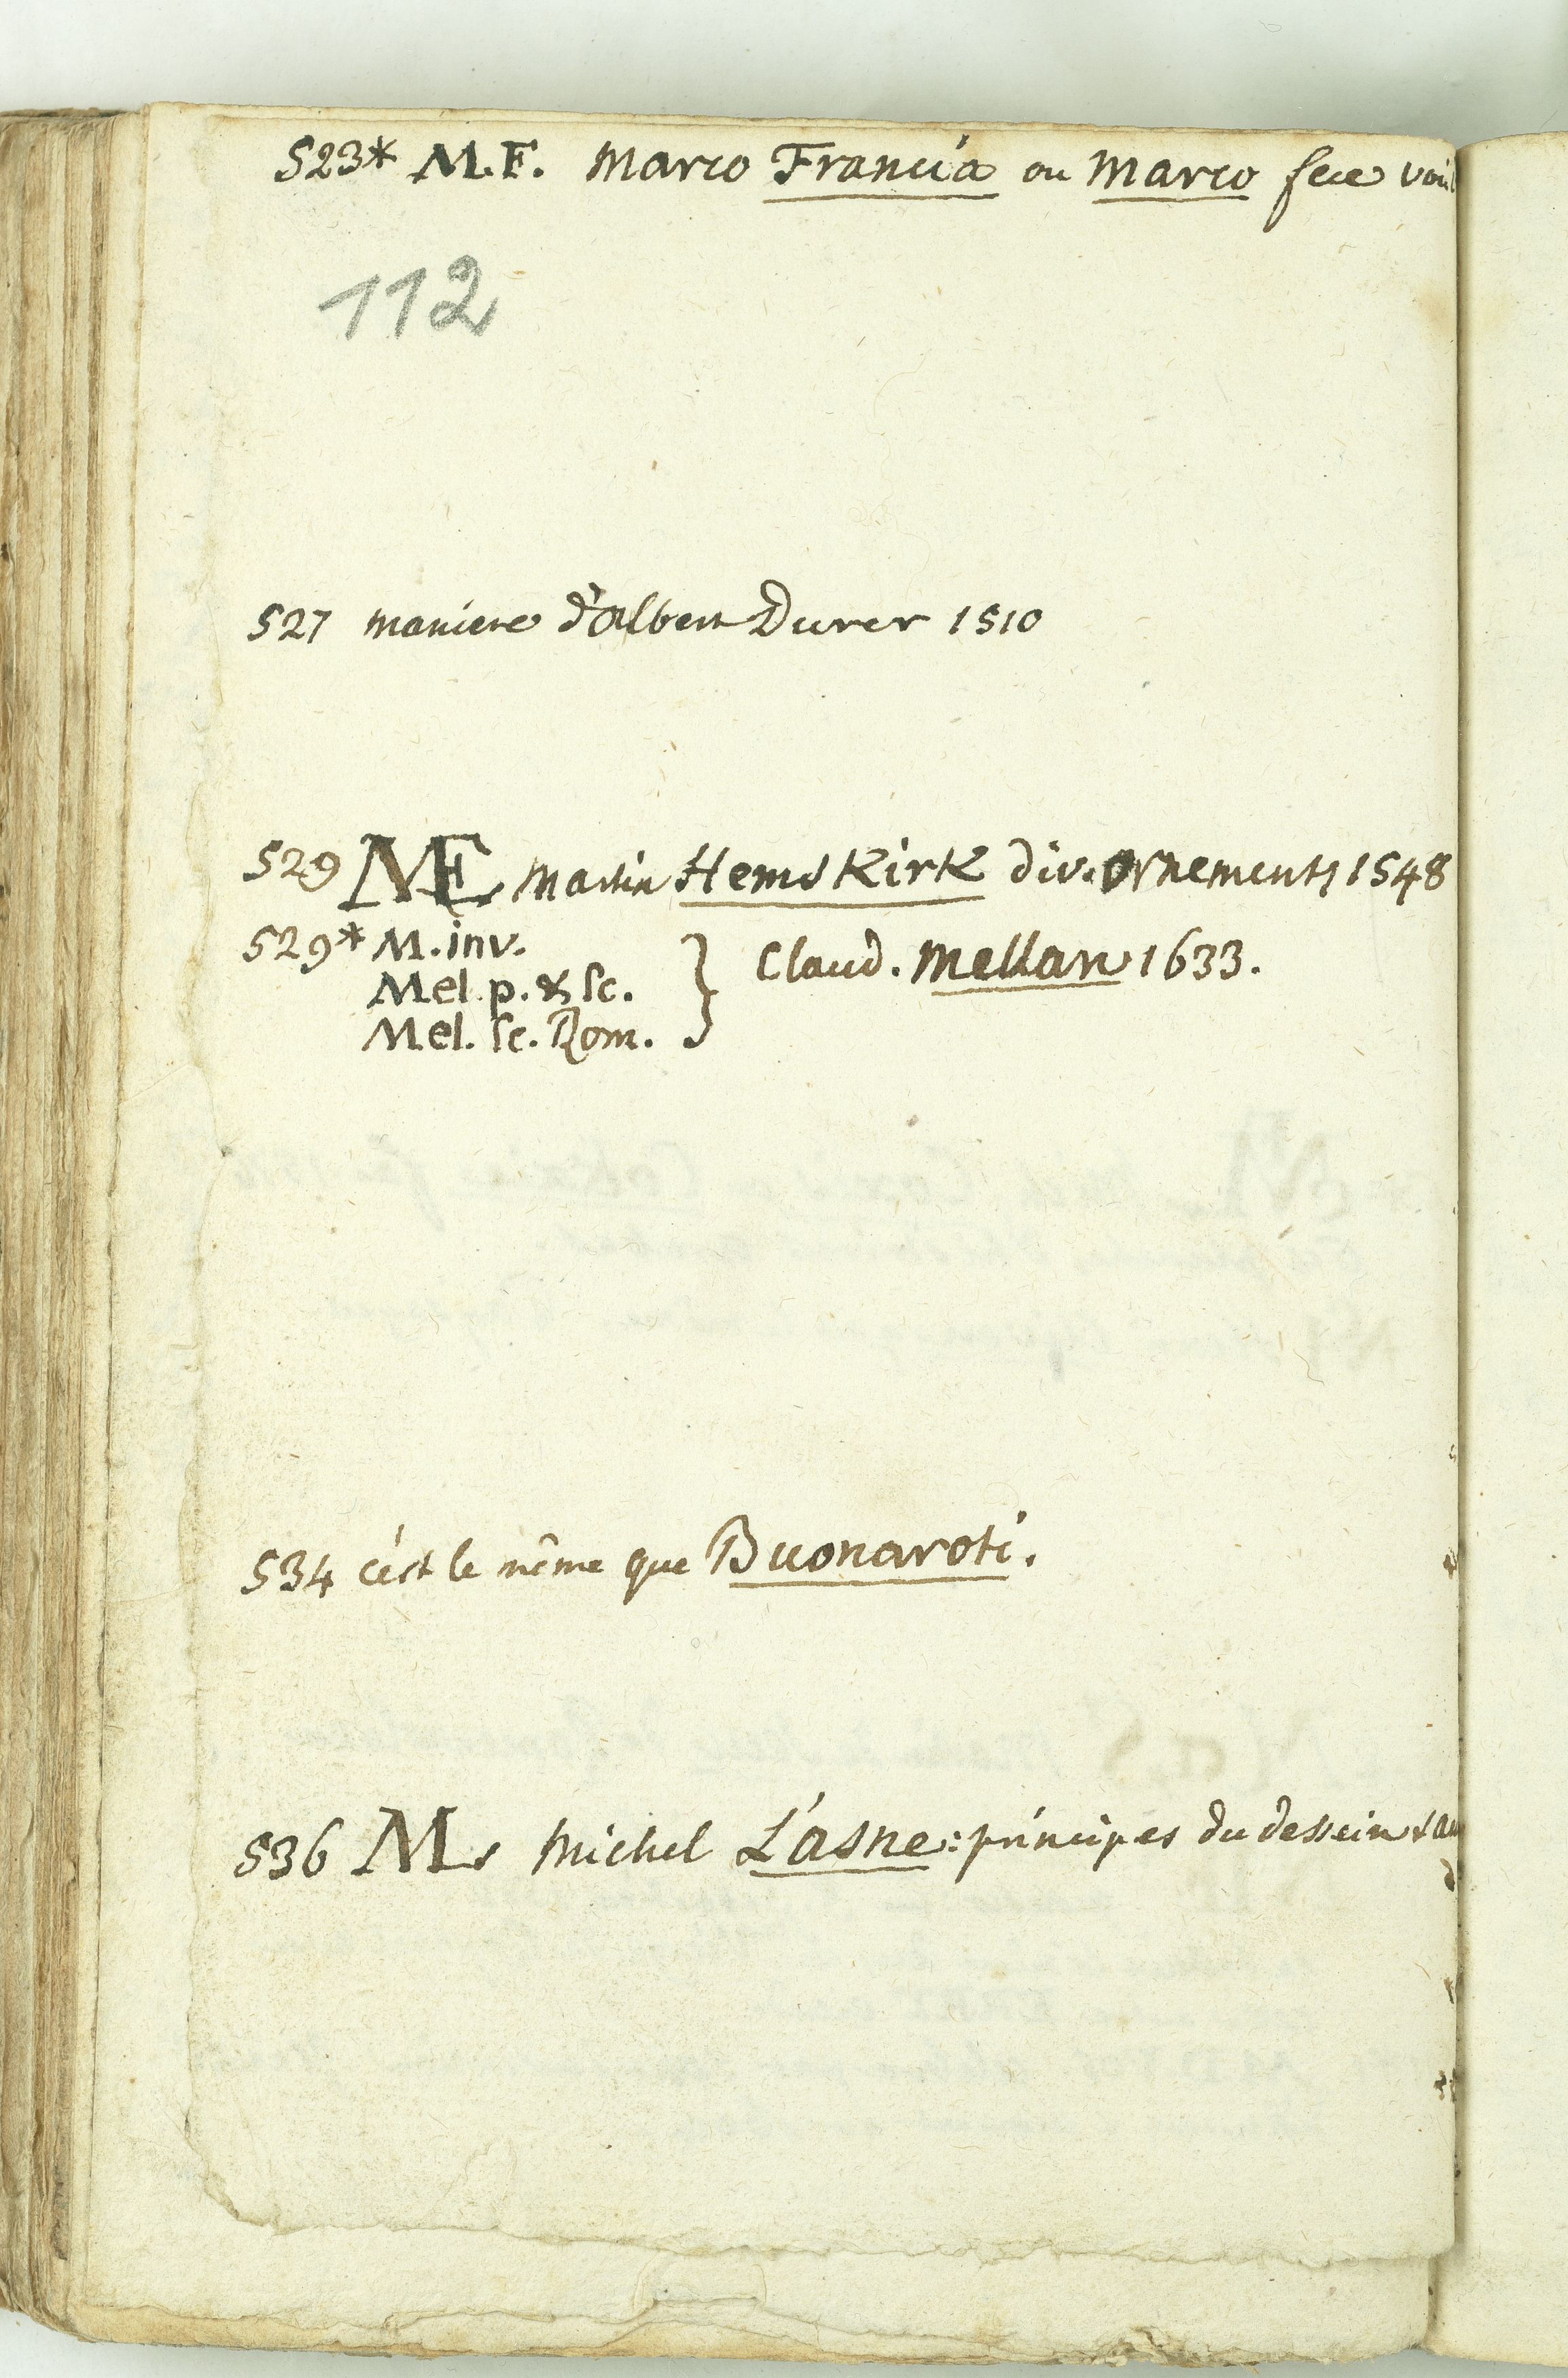 523* M.F. Marco Francia ou Marco fece
112
527 maniere d'albert Durer 1510
529 ME Martin Hemskirk div. ornements 1548
529* M. inv.
Mel. p. & sc. } Claud. Mellan 1633.
Mel. sc. Rom.
534 c'est le même que Buonaroti.
536 M Michel L'asne: principes du dessein &